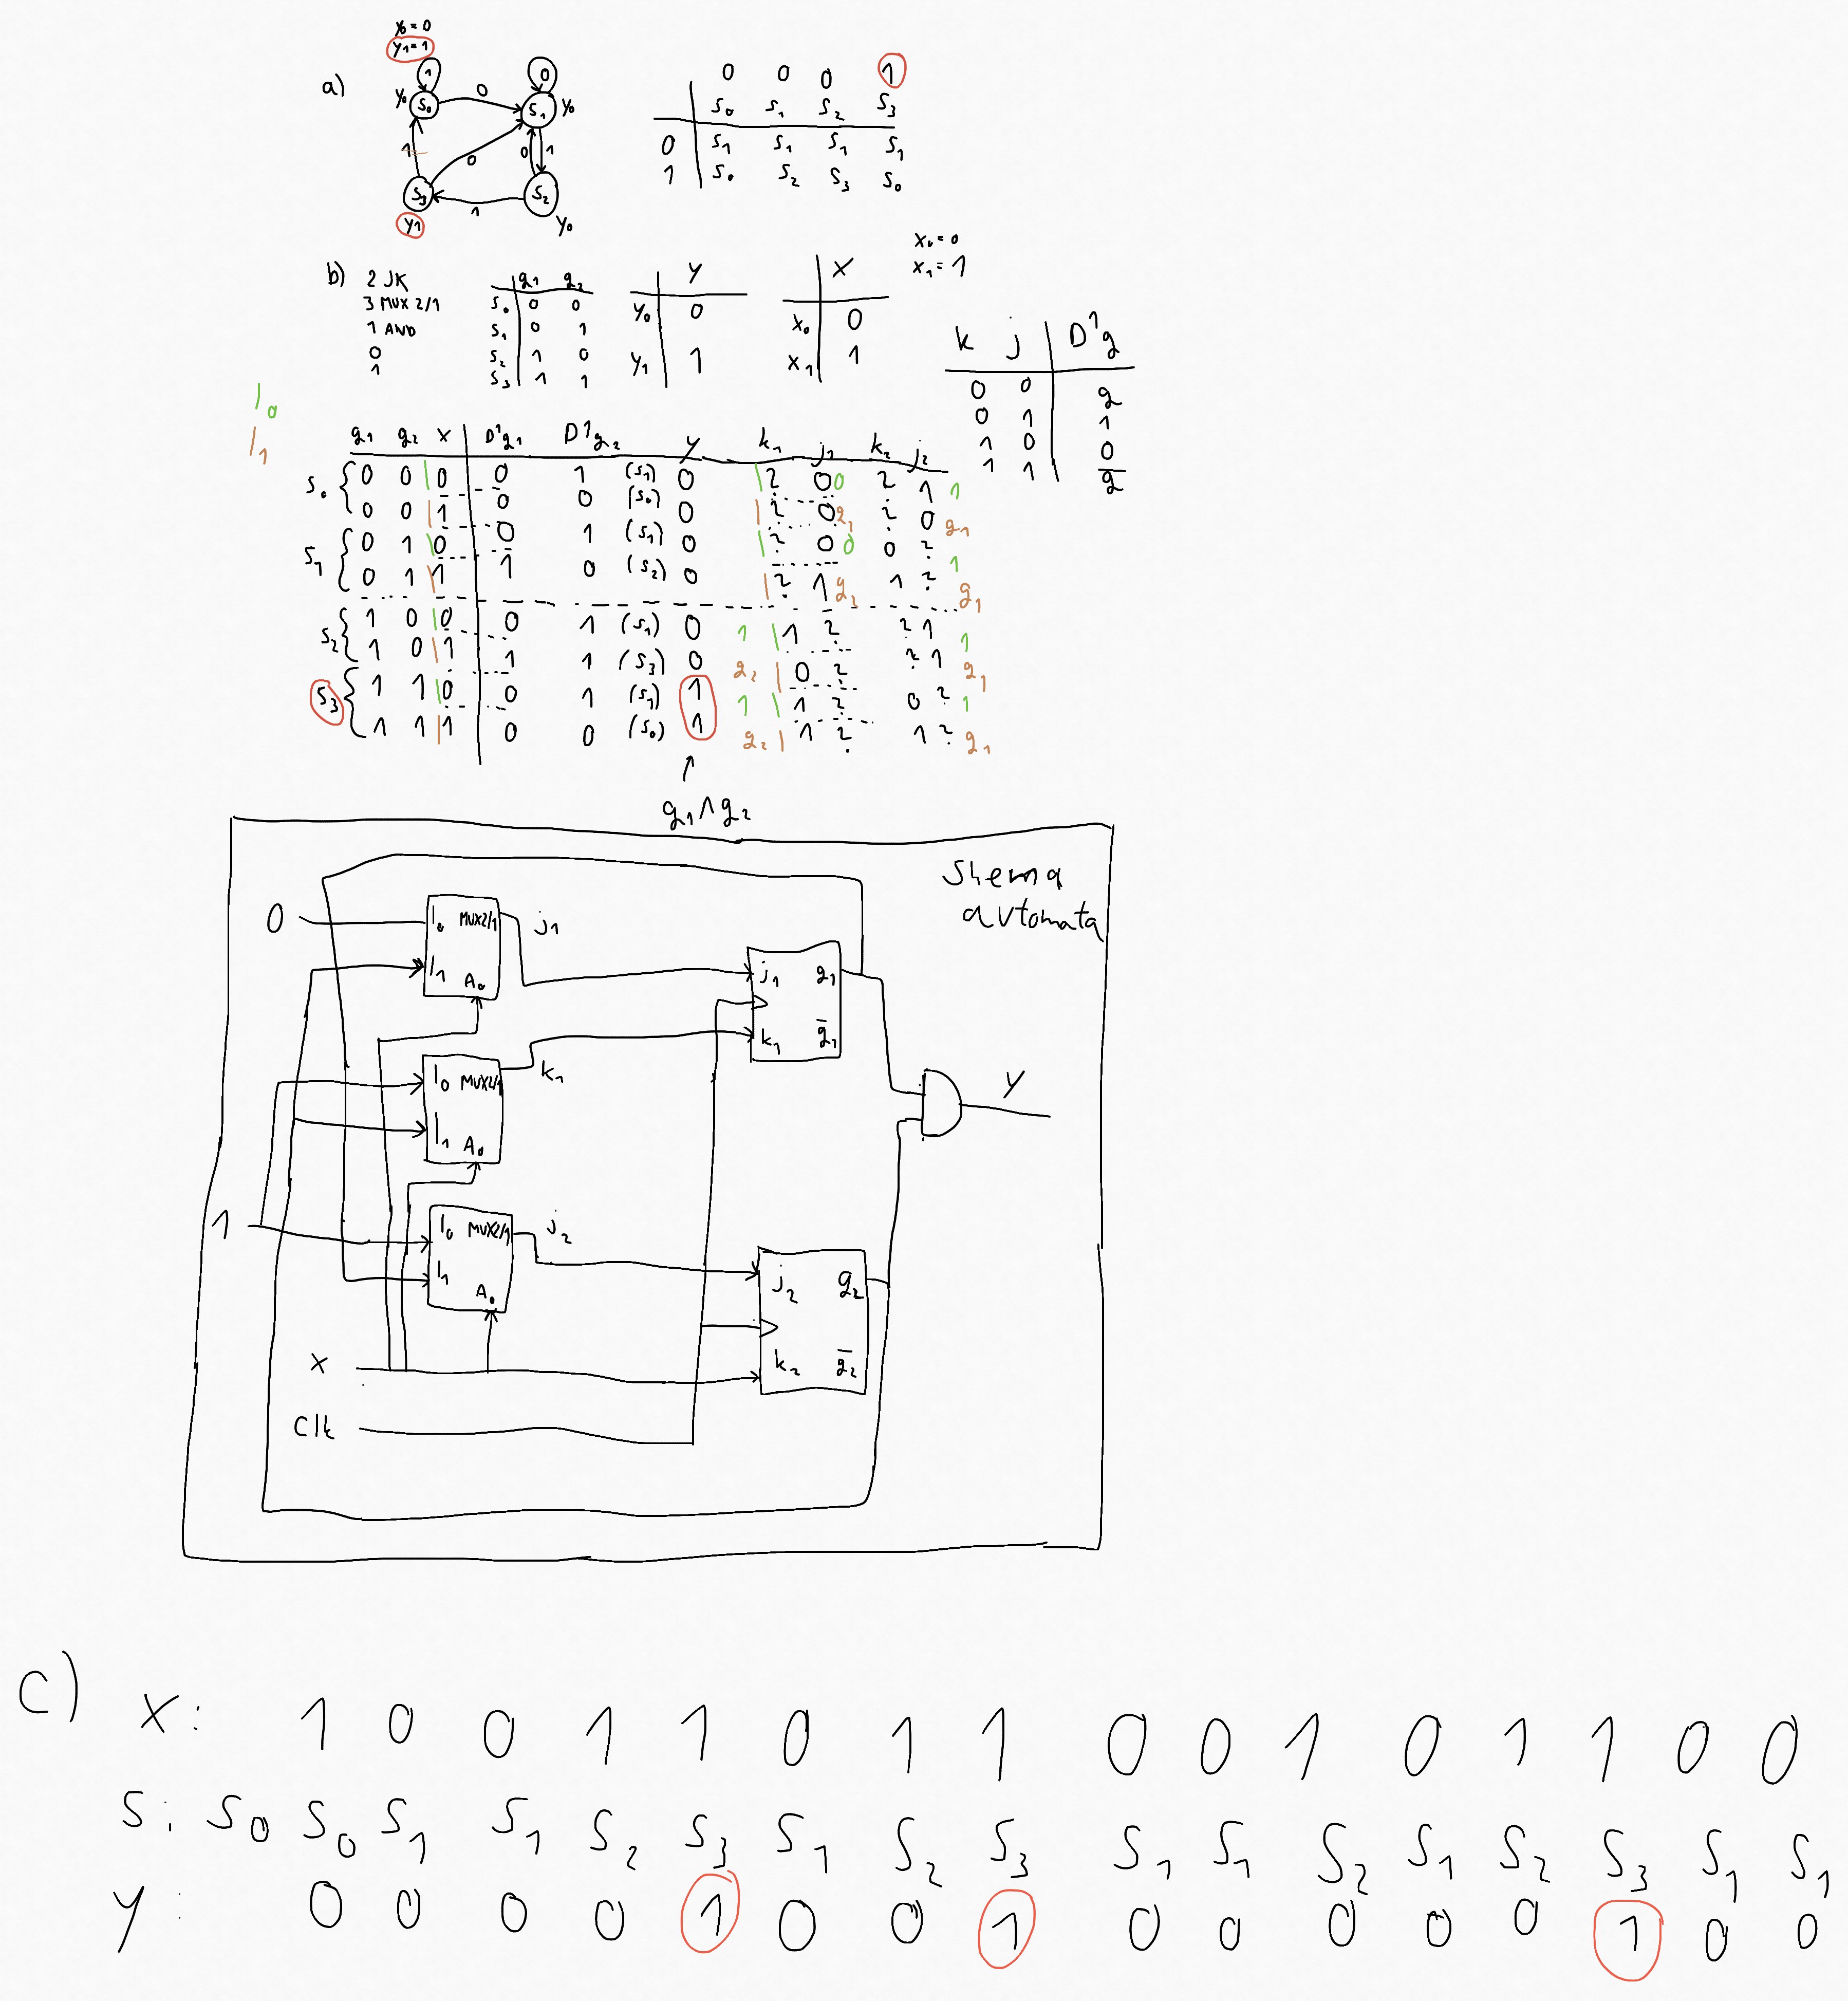 y₀ = 0
y₁ = 1
a)
1 0
y₀ S₀ 0 S₁ y₀
1 0 0 1
S₃ 1 S₂
y₁ y₀
0 0 0 1
S₀ S₁ S₂ S₃
0 S₁ S₁ S₁ S₁
1 S₀ S₂ S₃ S₀
b)
2 JK
3 MUX 2/1
1 AND
0
1
q₁ q₂
S₀ 0 0
S₁ 0 1
S₂ 1 0
S₃ 1 1
y
y₀ 0
y₁ 1
X
x₀ 0
x₁ 1
x₀ = 0
x₁ = 1
k j D¹q
0 0 q
0 1 1
1 0 0
1 1 q̅
I₀
I₁
q₁ q₂ x D¹q₁ D¹q₂ y k₁ j₁ k₂ j₂
S₀ 0 0 0 0 1 (S₁) 0 ? 0 0 ? 1 1
0 0 1 0 0 (S₀) 0 ? 0 q₂ ? 0 q₁
S₁ 0 1 0 0 1 (S₁) 0 ? 0 0 0 ? 1
0 1 1 1 0 (S₂) 0 ? 1 q₂ 1 ? q₁
S₂ 1 0 0 0 1 (S₁) 0 1 1 ? ? 1 1
1 0 1 1 1 (S₃) 0 q₂ 0 ? ? 1 q₁
S₃ 1 1 0 0 1 (S₁) 1 1 1 ? 0 ? 1
1 1 1 0 0 (S₀) 1 q₂ 1 ? 1 ? q₁
↑
q₁ ∧ q₂
Shema
avtomata
0 I₀ MUX2/1 j₁
I₁ A₀
j₁ q₁
k₁ q̅₁
I₀ MUX2/1 k₁
I₁ A₀
y
1 I₀ MUX2/1 j₂
I₁
A₀
j₂ q₂
k₂ q̅₂
X
Clk
c)
X: 1 0 0 1 1 0 1 1 0 0 1 0 1 1 0 0
S: S₀ S₀ S₁ S₁ S₂ S₃ S₁ S₂ S₃ S₁ S₁ S₂ S₁ S₂ S₃ S₁ S₁
y: 0 0 0 0 1 0 0 1 0 0 0 0 0 1 0 0